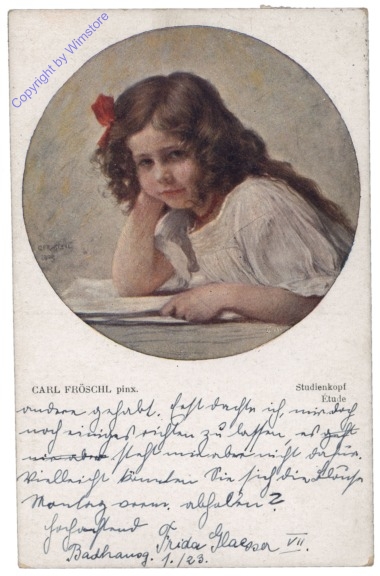 Copyright by Wimstore
CARL FRÖSCHL pinx.
Studienkopf
Étude
andere gehabt. Erst dachte ich, mir doch
noch einiges richten zu lassen, es geht
mir aber steht mir aber nicht dafür.
Vielleicht könnten Sie sich die Bluse
Montag vorm. abholen?
hochachtend
Frida Glaesser VII.
Badhausg. 1./23.